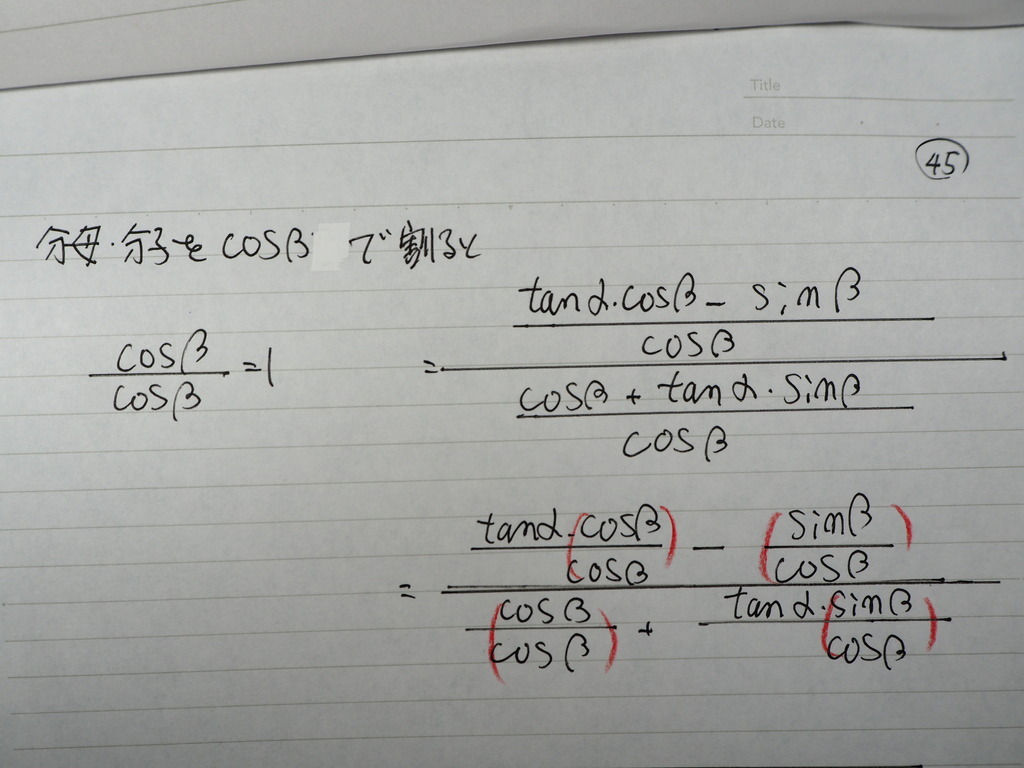 Title
Date
45
分母・分子をcosβで割ると
cosβ/cosβ = 1
= ((tanα・cosβ - sinβ)/cosβ) / ((cosβ + tanα・sinβ)/cosβ)
= (tanα・(cosβ/cosβ) - (sinβ/cosβ)) / ((cosβ/cosβ) + tanα・(sinβ/cosβ))